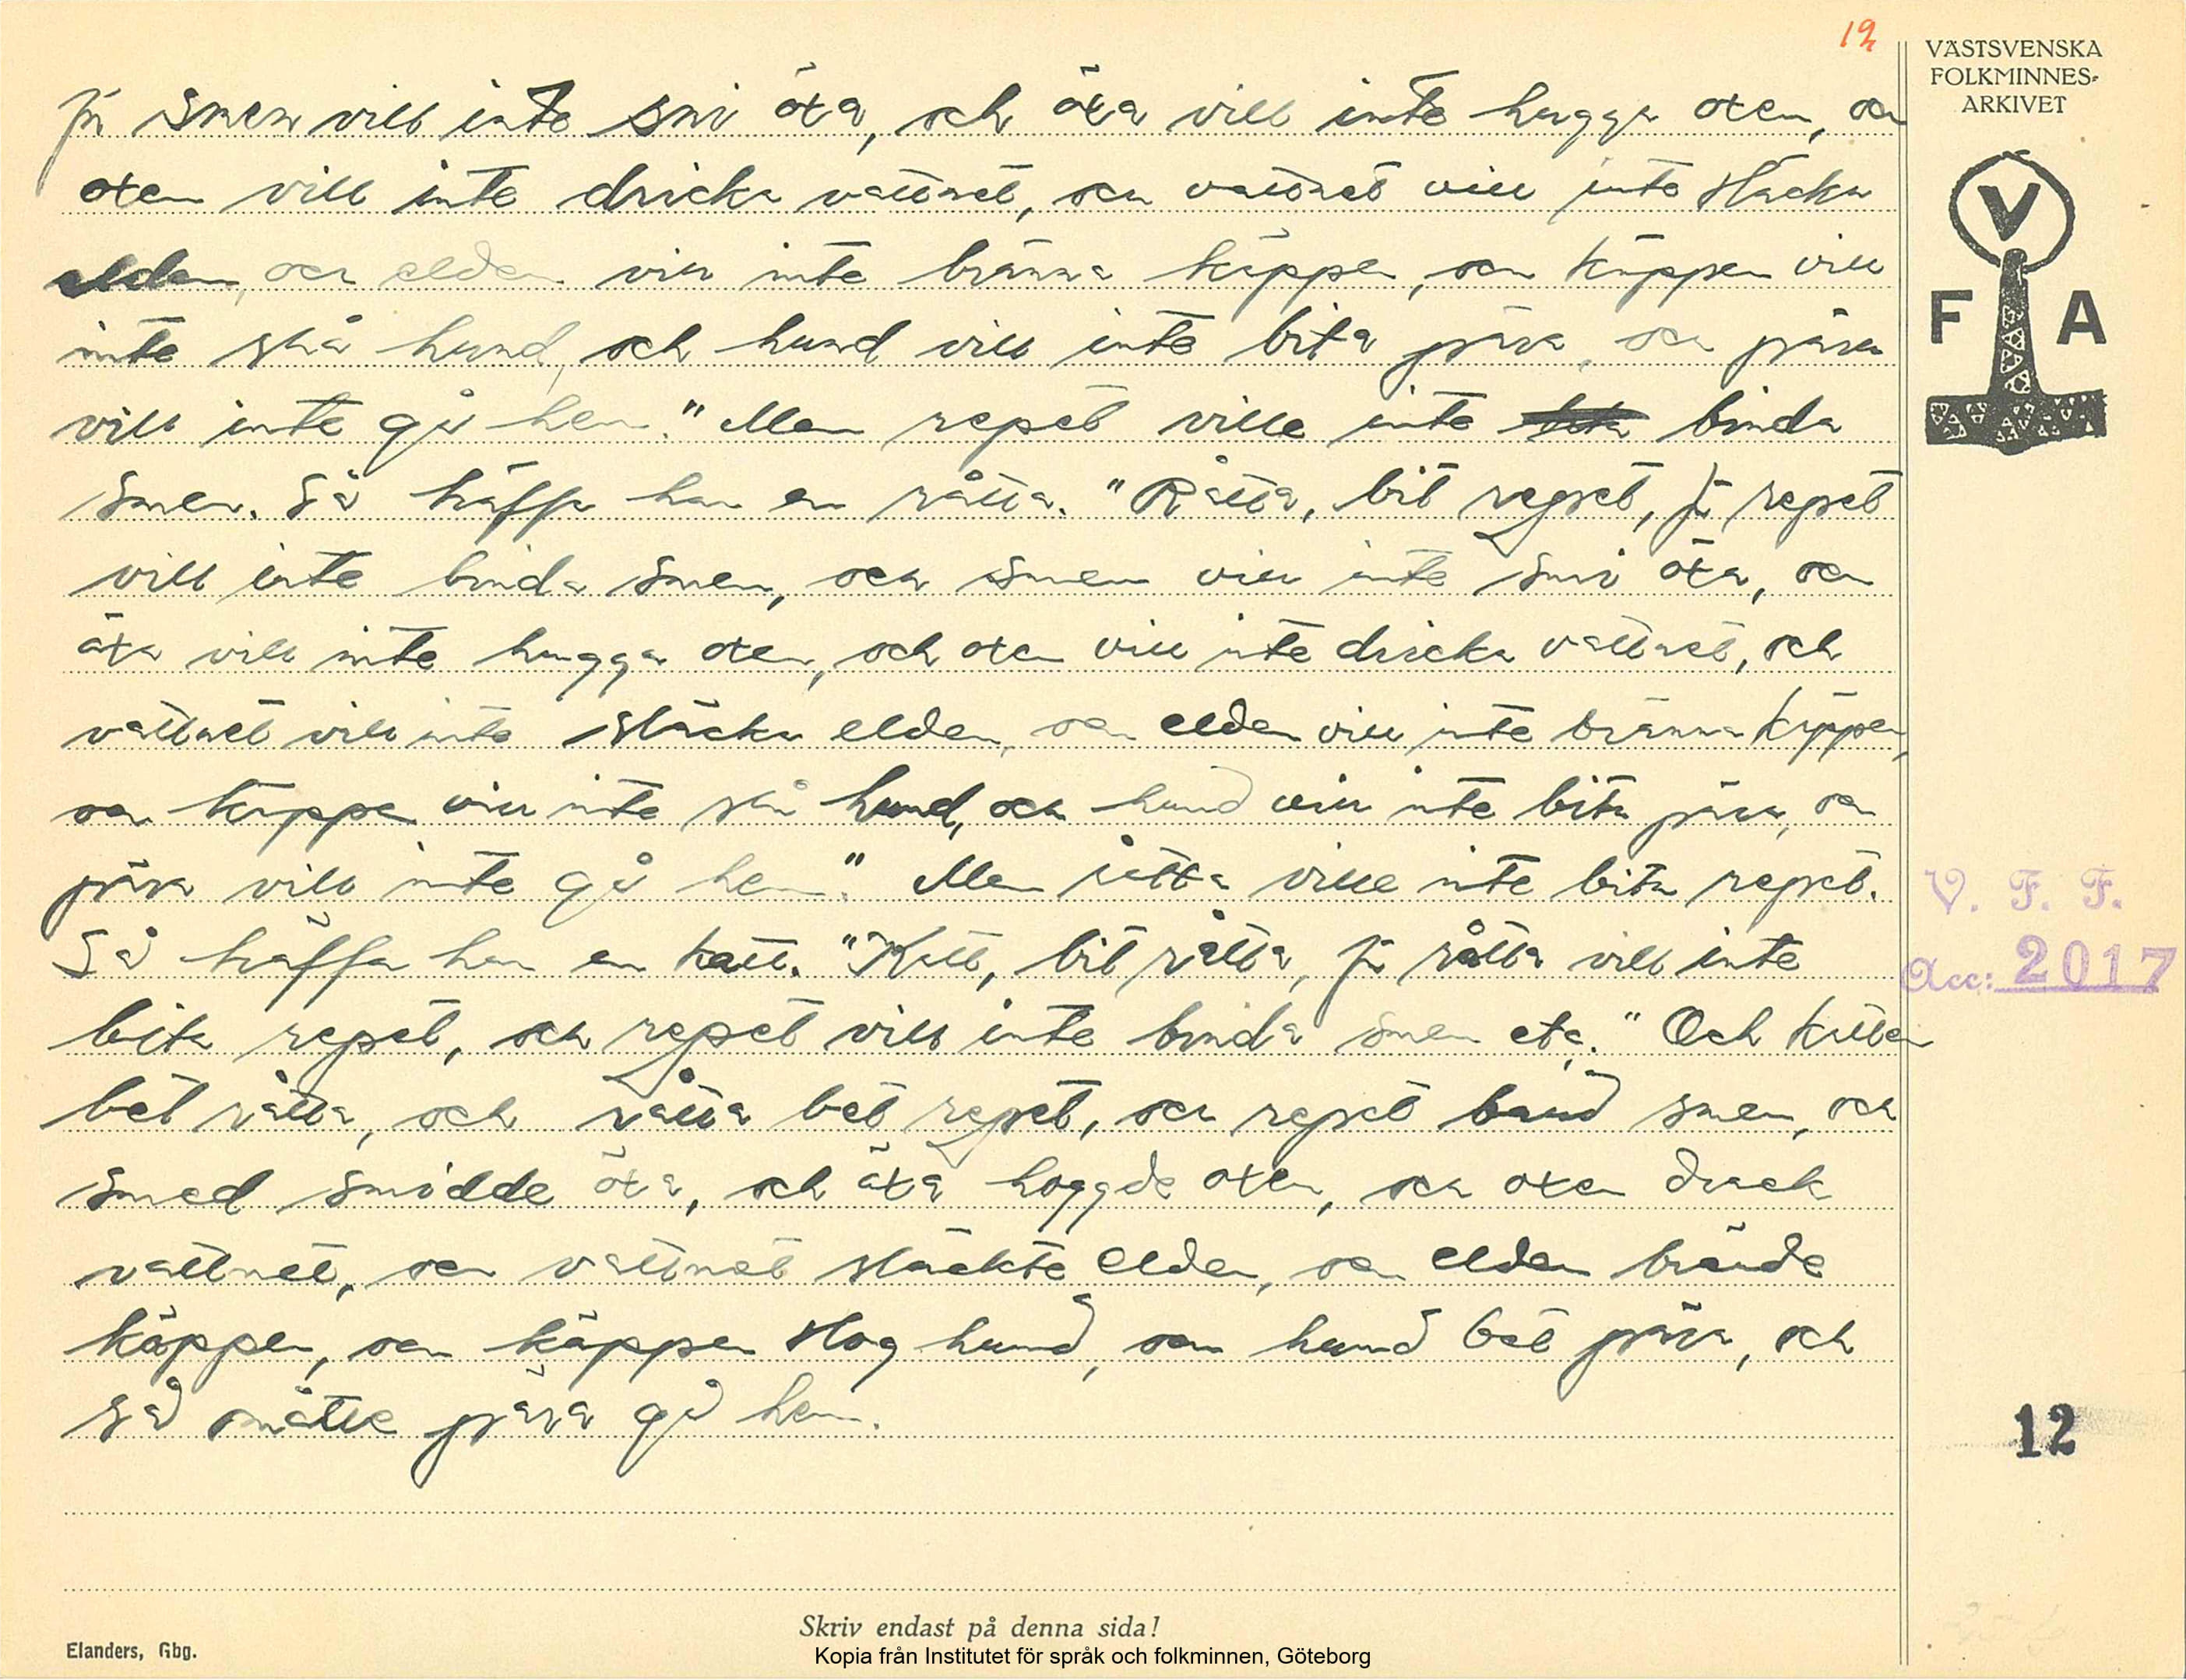 12
VÄSTSVENSKA
FOLKMINNES-
ARKIVET
V
F A
för smen vill inte smi öxa, och öxa vill inte hugga oxen, och
oxen vill inte dricka vattnet, och vattnet vill inte släcka
elden, och elden vill inte bränna käppen, och käppen vill
inte slå hund, och hund vill inte bita pära, och pära
vill inte gå hem." Men repet ville inte binda
smen. Så träffa han en råtta. "Råtta, bit repet, för repet
vill inte binda smen, och smen vill inte smi öxa, och
öxa vill inte hugga oxen, och oxen vill inte dricka vattnet, och
vattnet vill inte släcka elden, och elden vill inte bränna käppen,
och käppen vill inte slå hund, och hund vill inte bita pära, och
pära vill inte gå hem." Men råtta ville inte bita repet.
Så träffa han en katt. "Katt, bit råtta, för råtta vill inte
bita repet, och repet vill inte binda smen etc." Och katten
bet råtta, och råtta bet repet, och repet band smen, och
smed smidde öxa, och öxa hoggde oxen, och oxen drack
vattnet, och vattnet släckte elden, och elden brände
käppen, och käppen slog hund, och hund bet pära, och
så måtte pära gå hem.
V. F. F.
Acc: 2017
12
Skriv endast på denna sida!
Elanders, Gbg.
Kopia från Institutet för språk och folkminnen, Göteborg